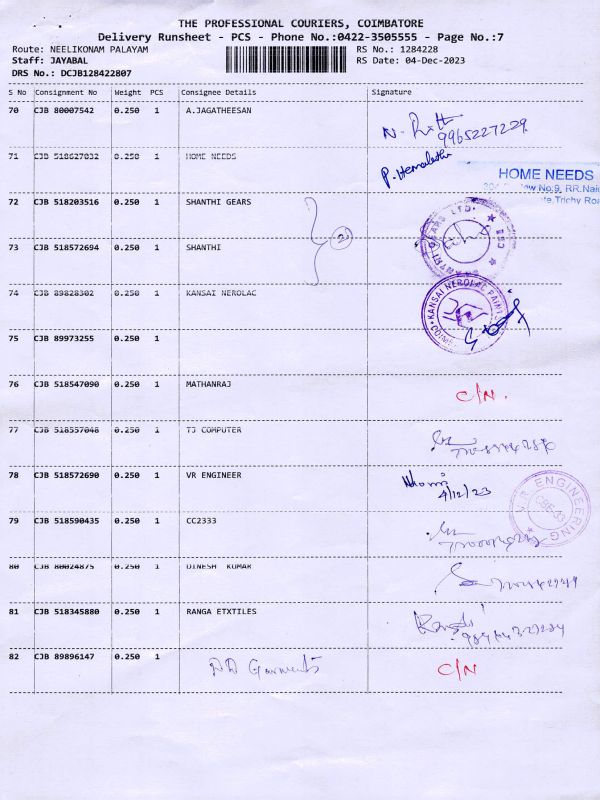 THE PROFESSIONAL COURIERS, COIMBATORE
Delivery Runsheet - PCS - Phone No.:0422-3505555 - Page No.:7
Route: NEELIKONAM PALAYAM RS No.: 1284228
Staff: JAYABAL RS Date: 04-Dec-2023
DRS No.: DCJB128422807
S No Consignment No Weight PCS Consignee Details Signature
70 CJB 80007542 0.250 1 A.JAGATHEESAN
9965227229
71 CJB 518627032 0.250 1 HOME NEEDS P. Hemalatha
HOME NEEDS
No:9, RR.Naid
Trichy Roa
72 CJB 518203516 0.250 1 SHANTHI GEARS
2
SHANTHI GEARS LTD.
73 CJB 518572694 0.250 1 SHANTHI
74 CJB 89828302 0.250 1 KANSAI NEROLAC
KANSAI NEROLAC PAINT
75 CJB 89973255 0.250 1
76 CJB 518547090 0.250 1 MATHANRAJ C/N.
77 CJB 518557048 0.250 1 TJ COMPUTER
78 CJB 518572690 0.250 1 VR ENGINEER
4/12/23
V.R ENGINEERING
79 CJB 518590435 0.250 1 CC2333
80 CJB 80024875 0.250 1 DINESH KUMAR
81 CJB 518345880 0.250 1 RANGA ETXTILES
82 CJB 89896147 0.250 1 DD Garments C/N